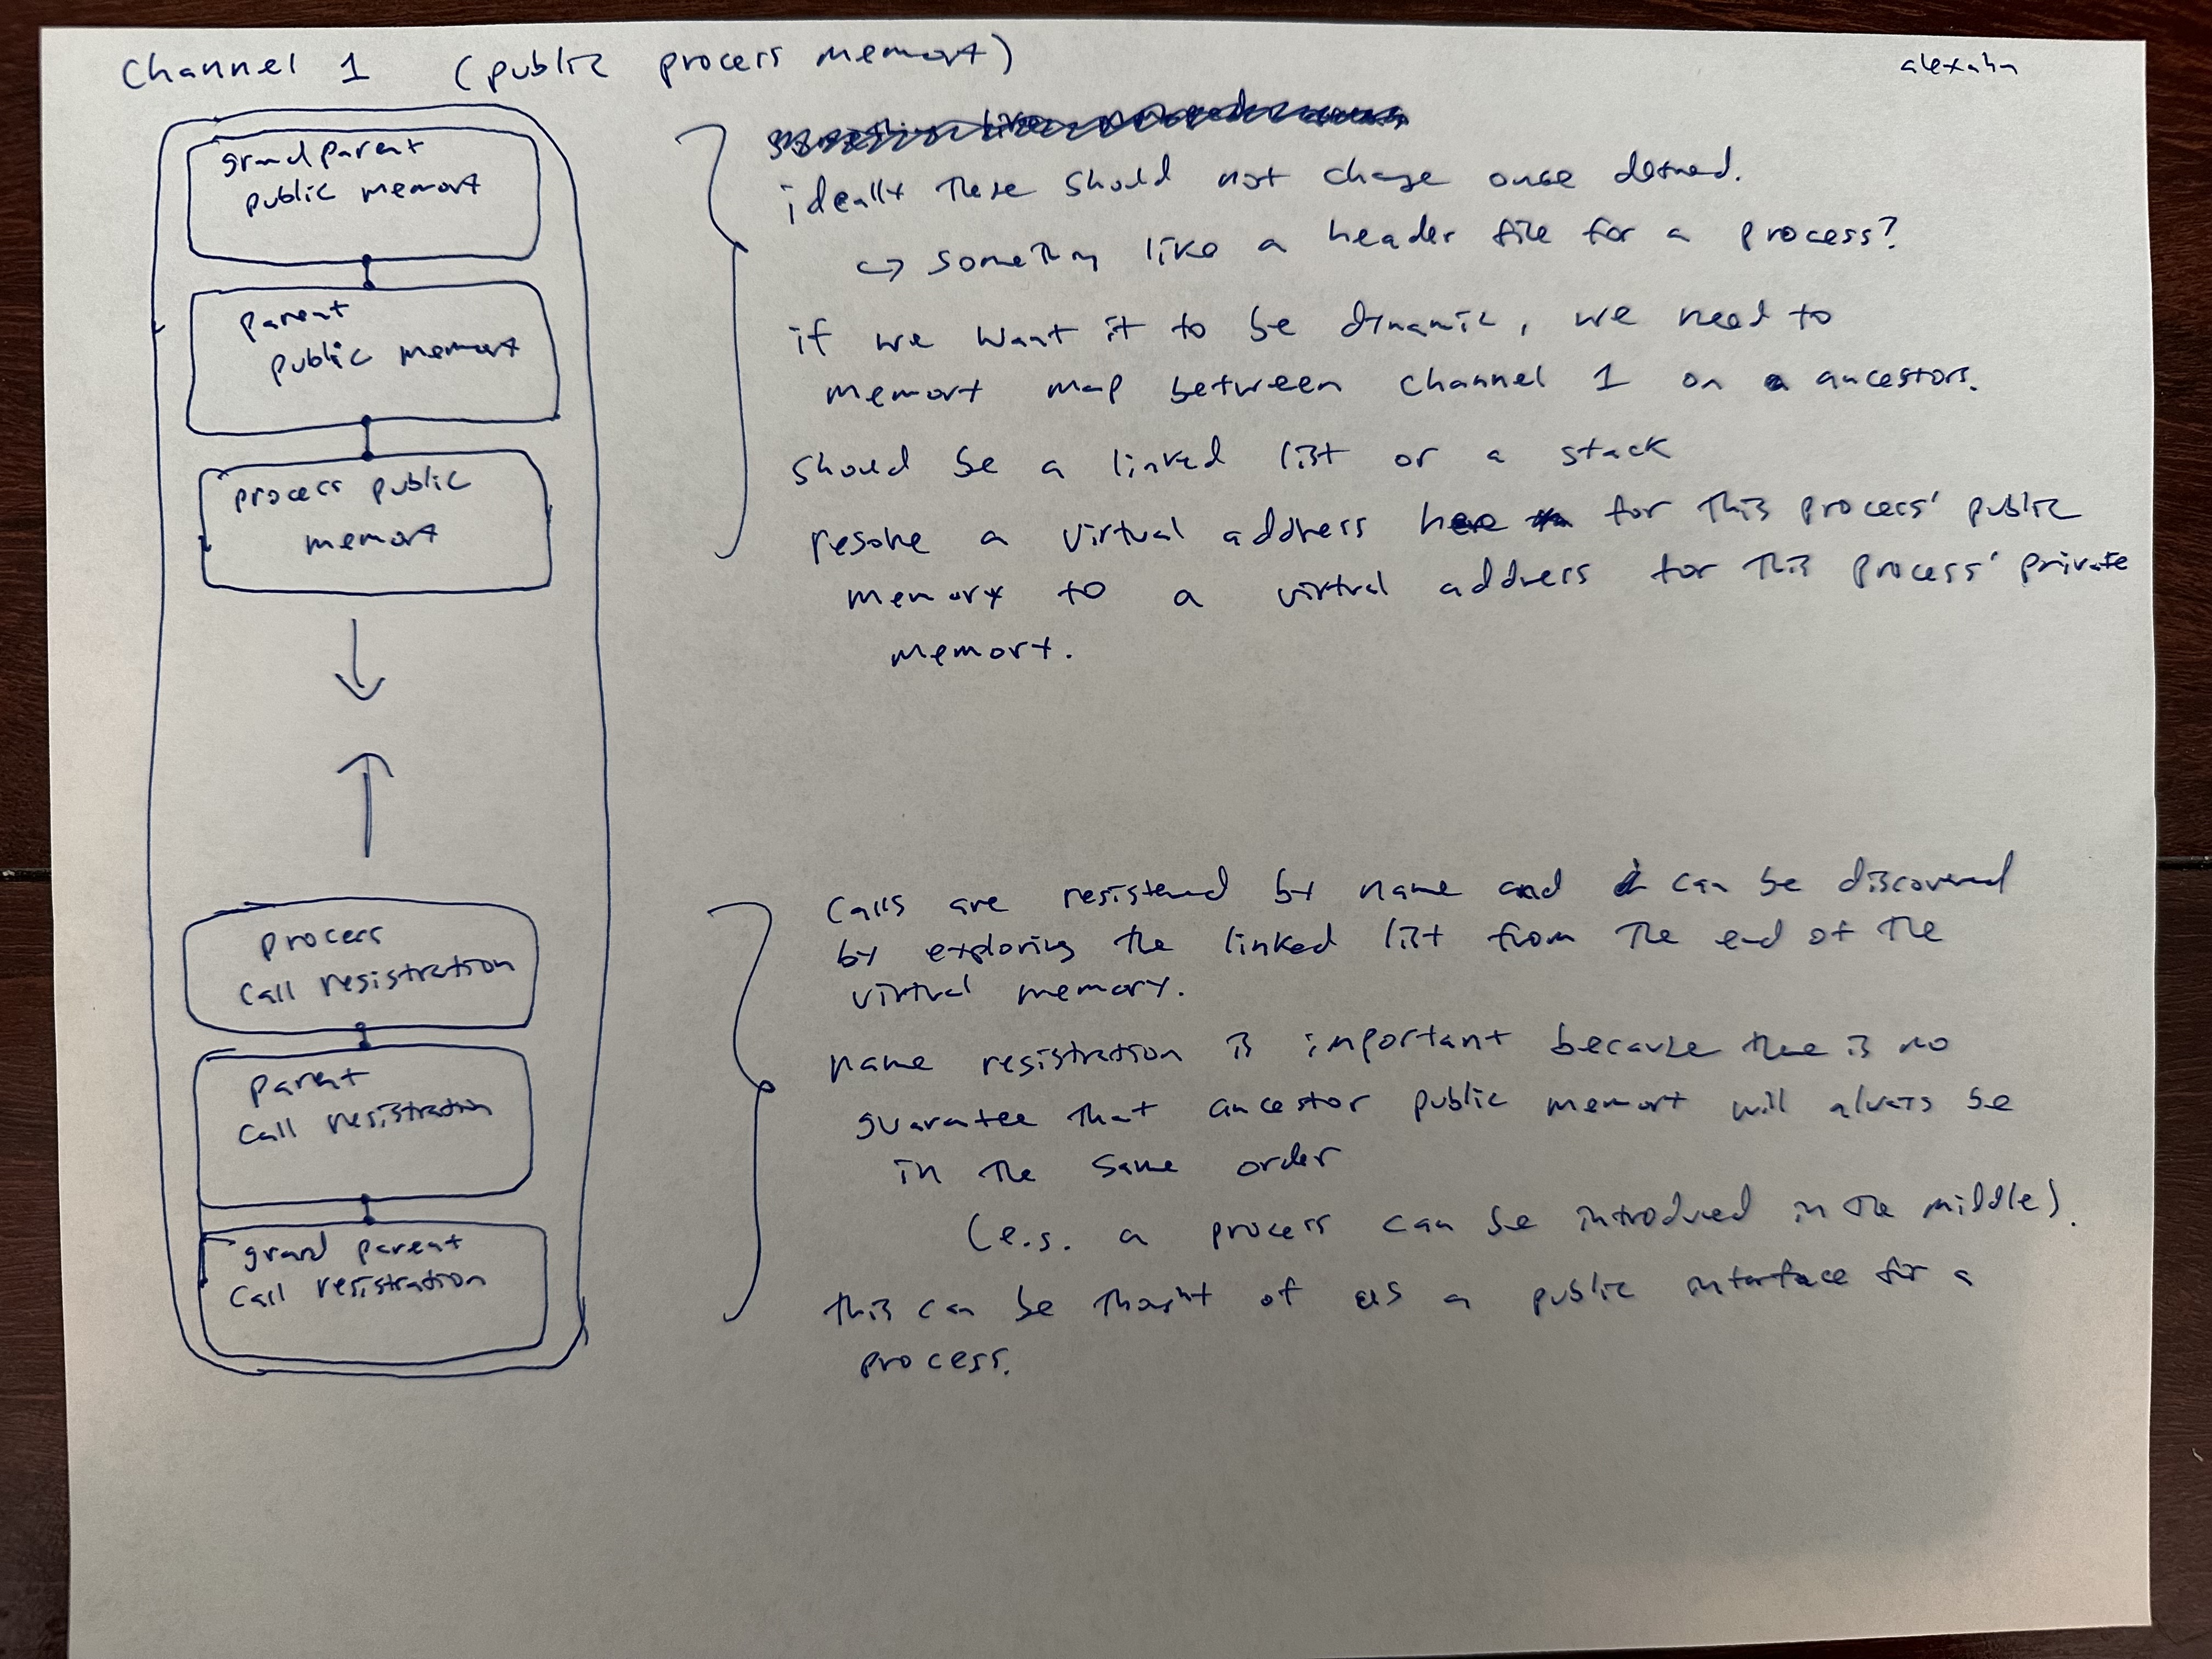 Channel 1 (public process memory)
alexahn
grandparent
public memory
parent
public memory
process public
memory
ideally these should not change once defined.
↪ something like a header file for a process?
if we want it to be dynamic, we need to
memory map between channel 1 on ancestors.
should be a linked list or a stack
resolve a virtual address here for this process' public
memory to a virtual address for this process' private
memory.
process
call registration
parent
call registration
grand parent
call registration
calls are registered by name and can be discovered
by exploring the linked list from the end of the
virtual memory.
name registration is important because there is no
guarantee that ancestor public memory will always be
in the same order
(e.g. a process can be introduced in the middle).
this can be thought of as a public interface for a
process.